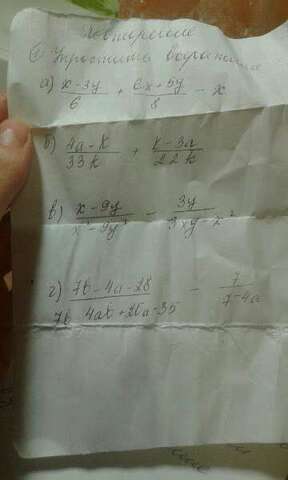 Упростить выражения
а) (x - 3y)/6 + (6x + 5y)/8 - x
б) (4a - k)/33k + (k - 3a)/22k
в) (x - 9y)/(x² - 9y²) - 3y/(3xy - x²)
г) (7b - 4a - 28)/(7b - 4ab + 20a - 35) - 7/(7 - 4a)